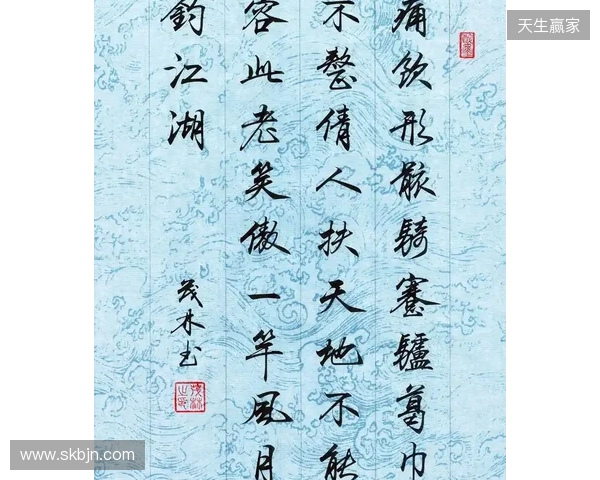 痛飲形骸騎蹇驢葛巾
不整倩人扶天地不能
容此老笑傲一竿風月
釣江湖
茂林书
天生赢家
www.skbjn.com